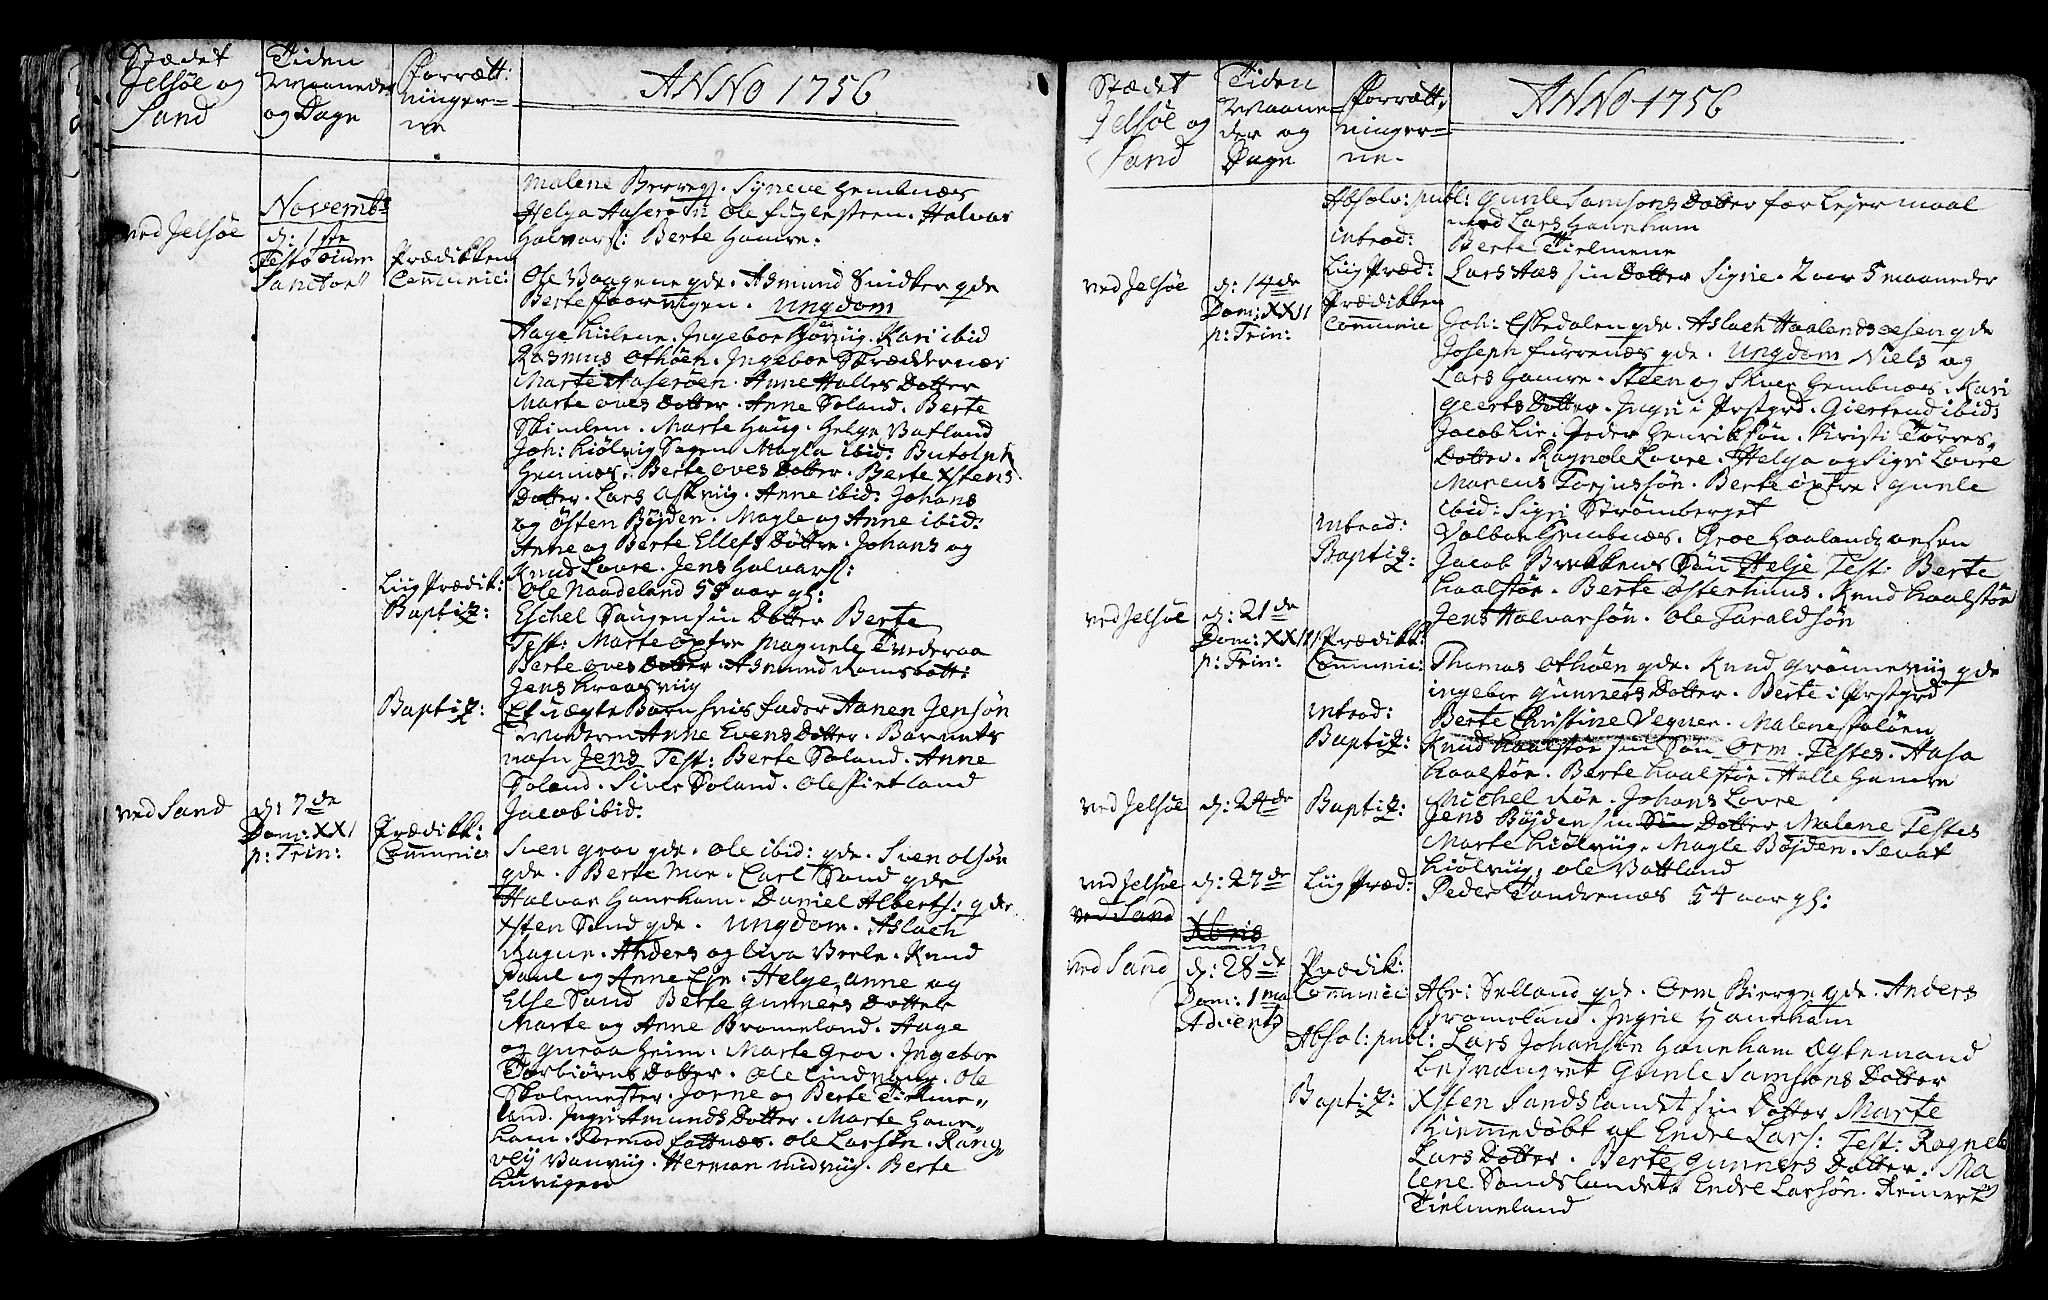 Stædet
Jelsøe og
Sand
Tiden
Maaneder
og Dage
Forrætt:
ninger-
ne
ANNO 1756
Malene Berreg. Syneve Hembnæs
Novembr
ved Jelsøe
Helga Aaserøen Ole Fuglesteen. Halvar
d: 1ste
Halvars: Berte Hamre.
Festo Oium
Sanctor
Prædikken
Communic:
Ole Vaagene qde. Asmund Snidker qde
Berte Faarvigen. Ungdom
Aage Lilene. Ingebor Børviig. Kari ibid
Rasmus Othøen. Ingebor Skræddernæs
Marte Aaserøen. Anne Halles Dotter
Marte Oves Dotter. Anne Soland. Berte
Skimlem. Marte Haug. Helge Vatland
Joh: Kiølvig Søgen Magla ibid: Butolph
Hemnæs. Berte Oves Dotter. Berte Xstens
Dotter. Lars Askviig. Anne ibid: Johans
og Østen Bøjden. Magle og Anne ibid:
Anne og Berte Ellefs Døttre. Johans og
Knud Lovre. Jens Halvars:
Liig Prædik:
Ole Naadeland 58 aar gl:
Baptiz:
Eschel Saugen sin Dotter Berte
Test: Marte Øxtre Magnele Tvederaa
Berte Oves Dotter. Asmund Ramsbott:
Jens Kraasviig
Baptiz:
Et uægte Barn hvis Fader Aanen Jensøn
Moderen Anne Evens Dotter. Barnets
nafn Jens Test: Berte Soland. Anne
Soland. Siver Soland. Ole Pintland
Jacob ibid.
ved Sand
d: 7de
Dom: XXI
p: Trin:
Prædikk:
Communic
Sven Grov qde. Ole ibid: qde. Sven Olsøn
qde. Berte Moe. Carl Sand qde
Halvar Haneham. Daniel Alberts: qde
Xsten Sand qde. Ungdom. Aslach
Ragur. Anders og Liva Veele. Knud
Paul og Anne Lie. Helge, Anne og
Else Sand Berte Gunners Dotter
Marte og Anne Bromeland. Aage
og Guroa Heim. Marte Grov. Ingebor
Torbiørns Dotter. Ole Lindvaug. Ole
Skolemester. Jorne og Berte Tielme„
land. Ingri Amunds Dotter. Marte Hane„
ham. Tormod Fattnæs. Ole Larsøn. Rang„
vej Vanviig. Herman Midviig. Berte
Luvigen
Stædet
Jelsøe og
Sand
Tiden
Maane-
der og
Dage
Forrætt,
ninger-
ne.
ANNO 1756
Absolv: publ: Gunle Samsons Dotter for Lejermaal
med Lars Haneham
introd:
Berte Tielmene
Liig Præd:
Lars Aas sin Dotter Signe. 2 aar 5 maaneder
ved Jelsøe
d: 14de
Dom: XXII
p: Trin:
Prædikken
Communic
Joh: Eskedalen qde. Aslach Haalandsosen qde
Joseph Furrenæs qde. Ungdom Niels og
Lars Hamre. Steen og Siver Hembnæs. Kari
Geerts Dotter. Ingri i Prstgrd. Giertrud ibid:
Jacob Lie. Peder Henriksøn. Kristi Torres„
Dotter. Ragnele Lovre. Helga og Sigri Lovre
Marcus Torjussøn. Berte Øxtre. Gunle
ibid: Sigri Strømberget
introd:
Valbor Hembnæs. Groe Haalandsosen
Baptiz:
Jacob Brekkens Søn Helje Test: Berte
Kaalstøn. Berte Østerhuus. Knud Kaalstøn
Jens Halvarsøn. Ole Taraldsøn
ved Jelsøe
d: 21de
Dom: XXIII
p: Trin:
Prædikk:
Communic:
Thomas Othøen qde. Knud Grønneviig qde
ingebor Gunners Dotter. Berte i Prstgrd
introd:
Berte Christine Vegner. Malene Foløen
Baptiz:
Knud Kaalstøn sin Søn Orm. Testes. Aasa
Kaalstøn. Berte Kaalstøn. Halle Hamre
Michel Røn. Johans Lovre
ved Jelsøe
d: 24de
Baptiz:
Jens Bøjden sin Søn Dotter Malene Testes
Marte Kiølviig. Magle Bøjden. Sevat
Kiølviig, Ole Vattland
ved Jelsøe
d: 27de
Liig Præd:
Peder Tandrenæs 54 aar gl:
ved Sand
Xbris
ved Sand
d: 28de
Dom: 1ma
Adventz
Prædik:
Communic
Abr: Selland qde. Orm Bierge qde. Anders
Bromeland. Ingrie Haneham
Absol: publ: Lars Johansøn Haneham Ægtemand
besvangret Gunle Samsons Dotter
Baptiz:
Xsten Sandslandet sin Dotter Marte
hiemmedøbt af Endre Lars: Test: Ragnele
Lars Dotter. Berte Gunners Dotter. Ma
lene Sandslandet. Endre Larsøn. Reinert
Tielmeland